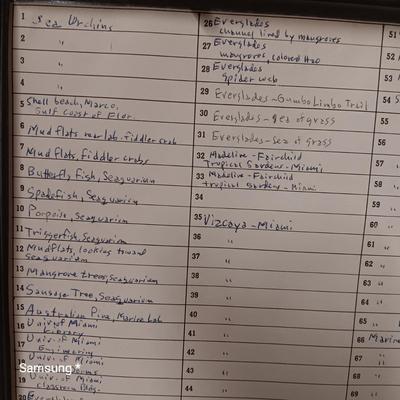 1 Sea Urchins
2 "
3 "
4 "
5 Shell beach, Marco,
Gulf coast of Flor.
6 Mud flats near lab. Fiddler crab
7 Mud flats, Fiddler crabs
8 Butterfly Fish, Seaquarium
9 Spadefish, Seaquarium
10 Porpoise, Seaquarium
11 Triggerfish, Seaquarium
12 Mudflats, looking toward
Seaquarium
13 Mangrove trees, Seaquarium
14 Sausage Tree, Seaquarium
15 Australian Pine, Marine Lab
16 Univ. of Miami
Library
17 Univ. of Miami
Engineering
18 Univ. of Miami
19 Univ. of Miami
classroom Bldg.
20 Everglades
26 Everglades
channel lined by mangroves
27 Everglades
mangroves, colored H2O
28 Everglades
Spider web
29 Everglades - Gumbo Limbo Trail
30 Everglades - Sea of grass
31 Everglades - Sea of grass
32 Madeline - Fairchild
Tropical Gardens - Miami
33 Madeline - Fairchild
tropical Gardens - Miami
34
35 Vizcaya - Miami
36 "
37 "
38 "
39 "
40 "
41 "
42 "
43 "
44 "
51
52
53
54 S
55
56
57
58
59
60 "
61 "
62 "
63 "
64 "
65 "
66 Marine
67
68
69
Samsung*